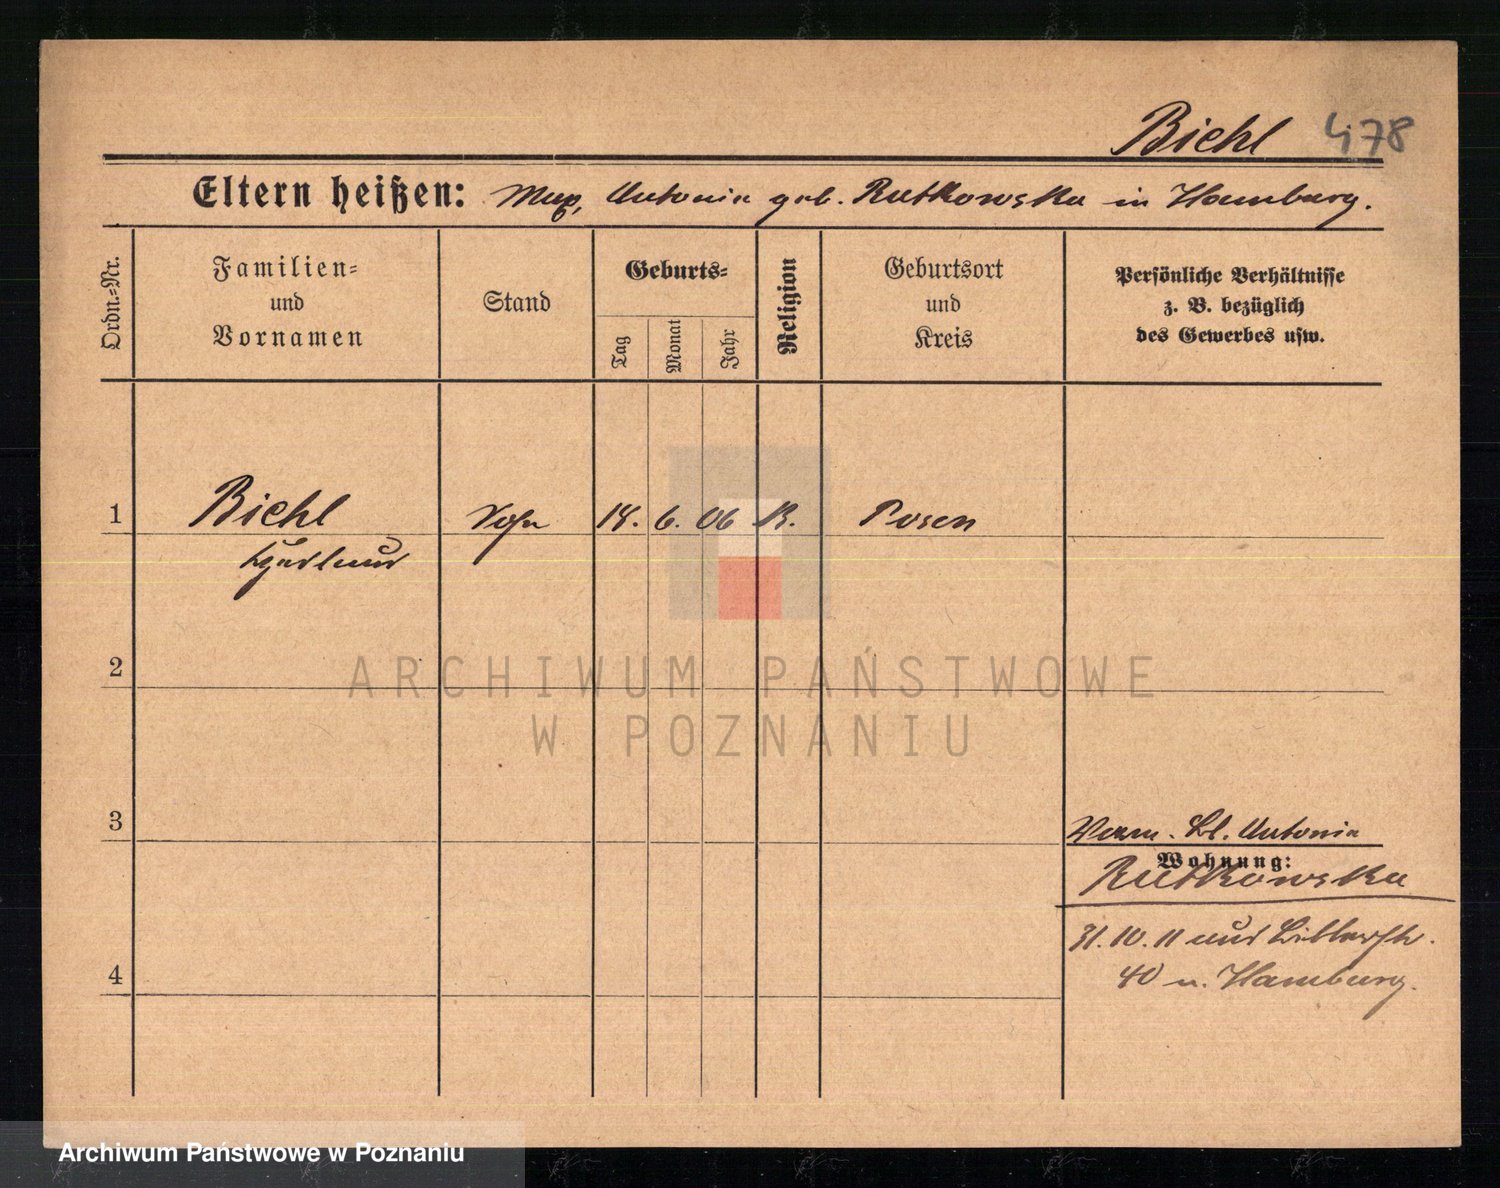 Biehl 478
Eltern heißen: Max, Antonia geb. Rutkowska in Hamburg.
Ordn.=Nr.
Familien=
und
Vornamen
Stand
Geburts=
Tag
Monat
Jahr
Religion
Geburtsort
und
Kreis
Persönliche Verhältnisse
z. B. bezüglich
des Gewerbes usw.
1 Biehl Sohn 18. 6. 06 K. Posen
2
ARCHIWUM PAŃSTWOWE
W POZNANIU
3
Antonia
Wohnung:
Rutkowska
31.10.11
4
40 n. Hamburg.
Archiwum Państwowe w Poznaniu